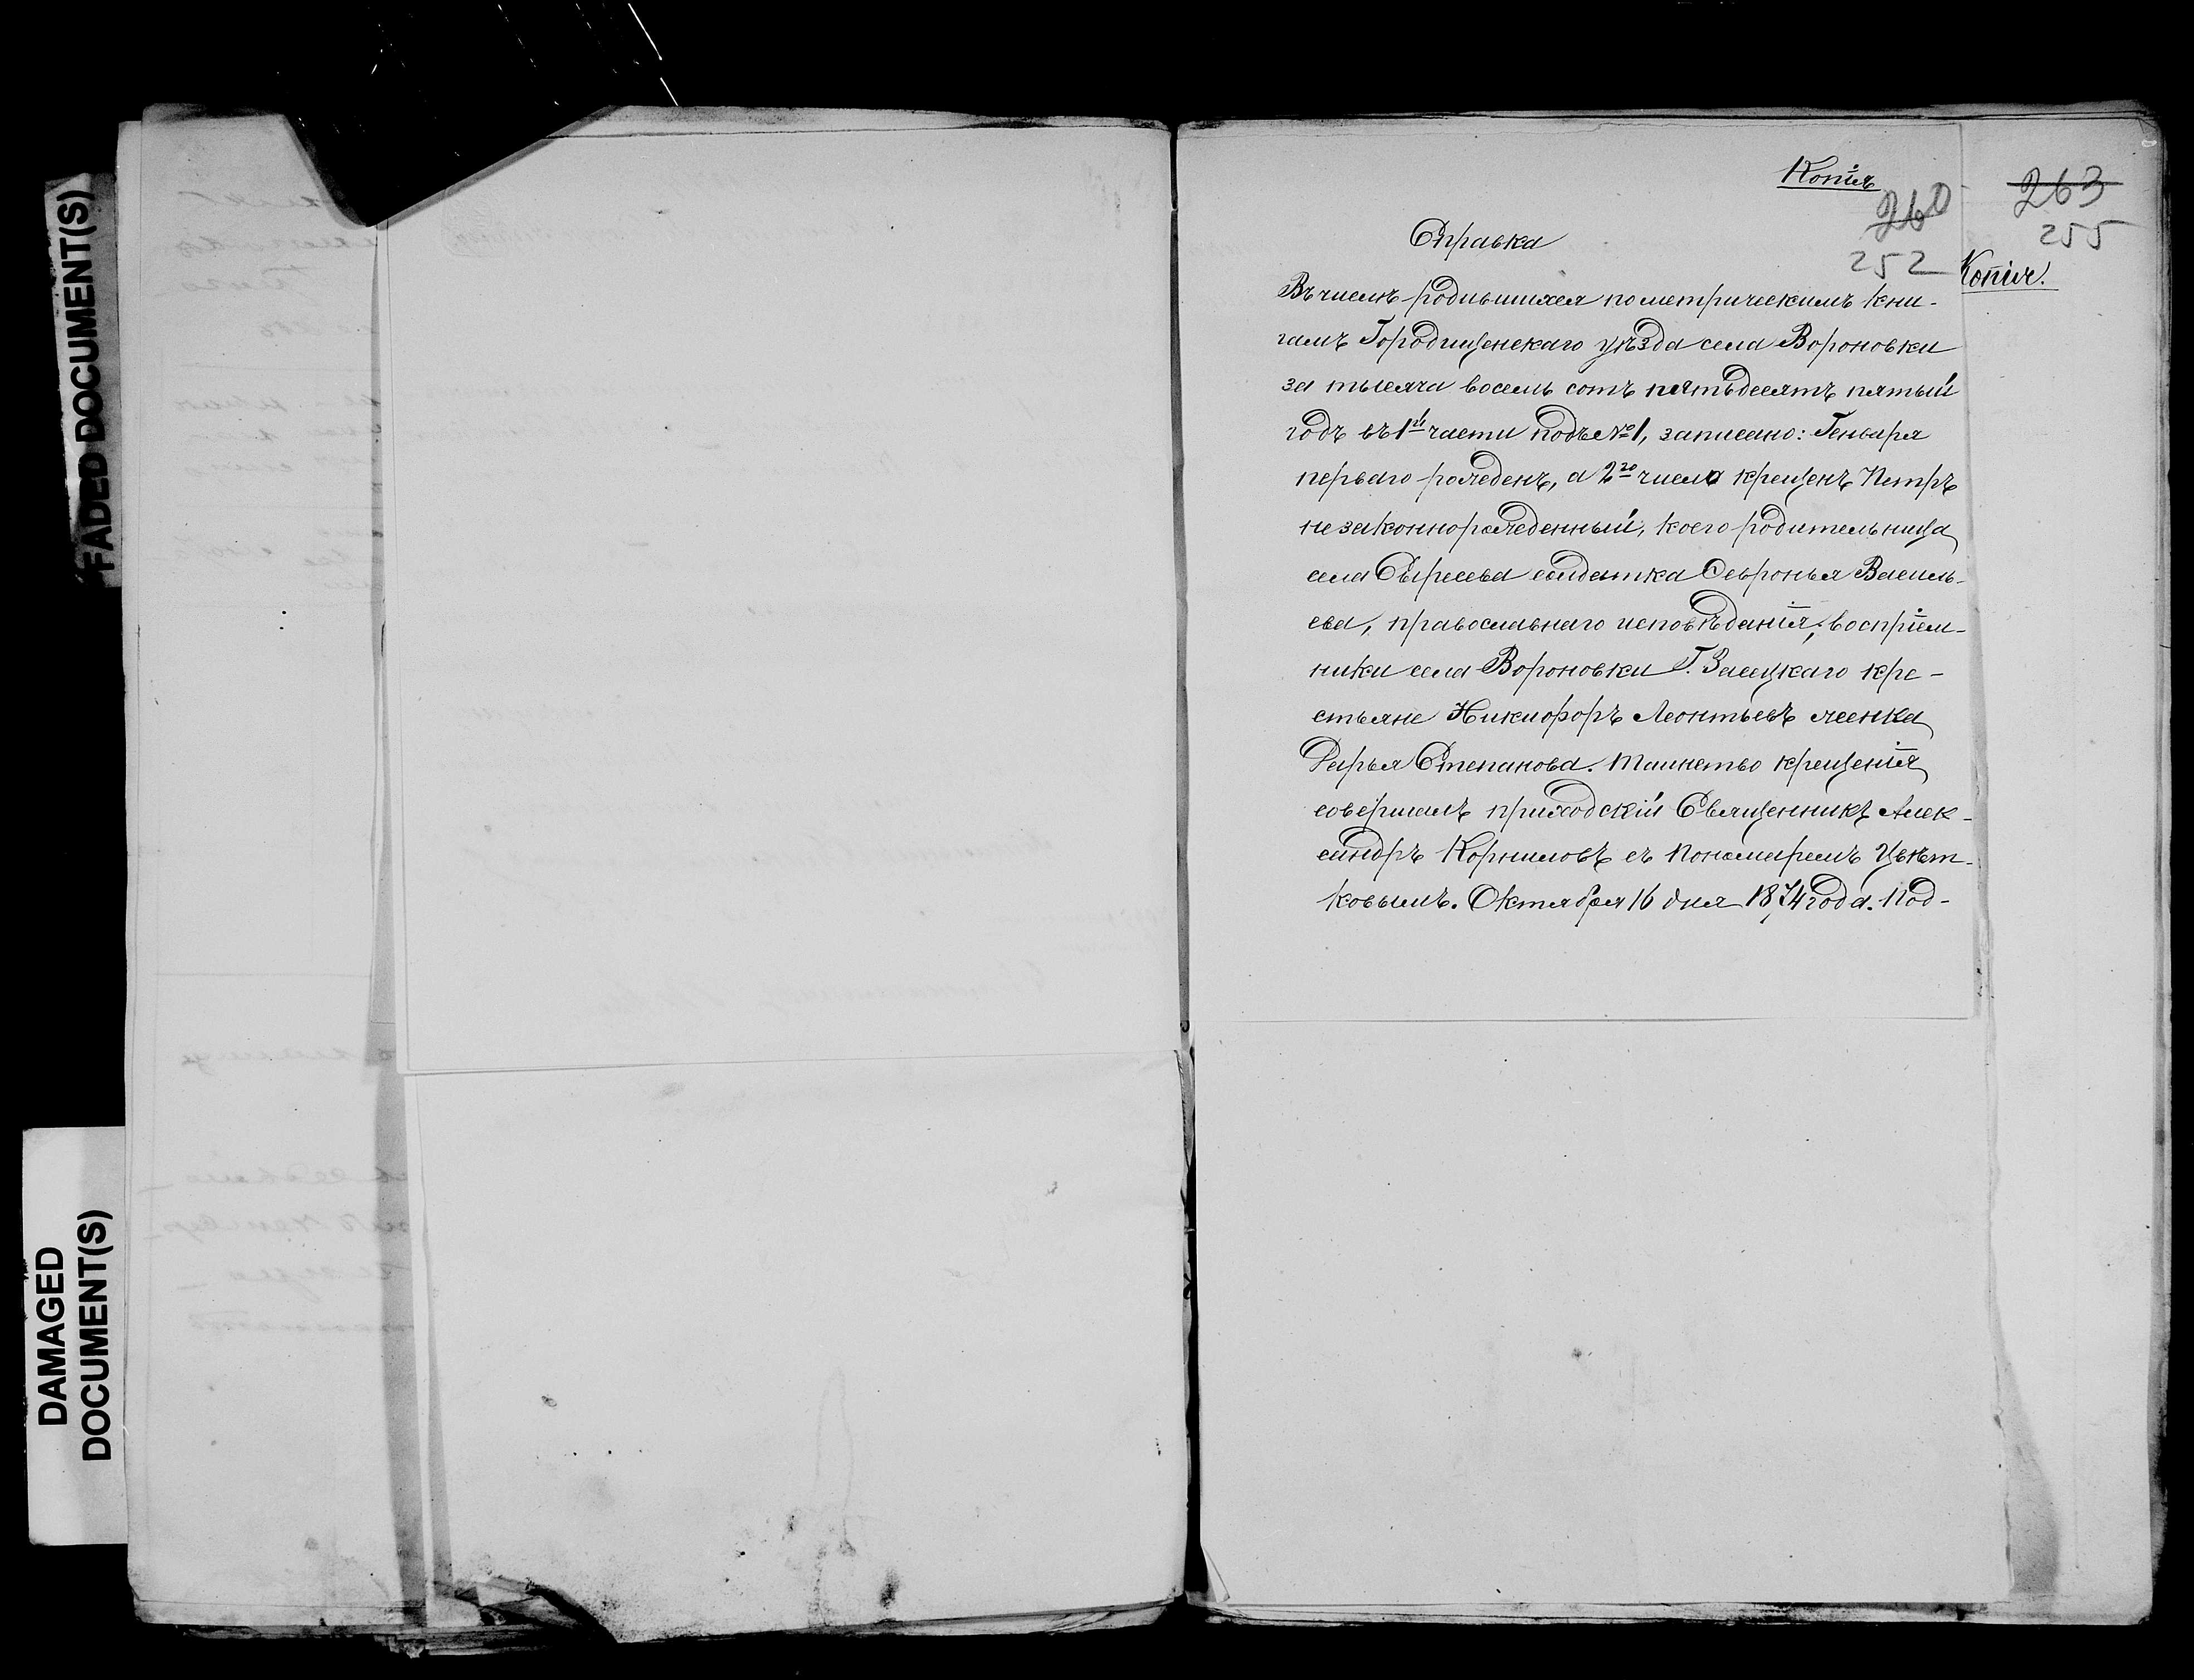 FADED DOCUMENT(S)
DAMAGED
DOCUMENT(S)
Копія
260
252
263
255
Копія.
Справка
Въ числѣ родившихся по метрическимъ кни-
гамъ Городищенскаго уѣзда села Вороновки
за тысяча восемь сотъ пятьдесятъ пятый
годъ въ 1й части подъ №1, записано: Генваря
перваго рожденъ, а 2го числа крещенъ Петръ
незаконнорожденный, коего родительница
села Сыресева солдатка Февронья Василь-
ева, православнаго исповѣданія; воспріем-
ники села Вороновки Г. Засецкаго кре-
стьяне Никифоръ Леонтьевъ женка
Дарья Степанова. Таинство крещенія
совершалъ приходскій Священникъ Алек-
сандръ Корниловъ съ Пономаремъ Цвѣт-
ковымъ. Октября 16 дня 1874 года. Под-